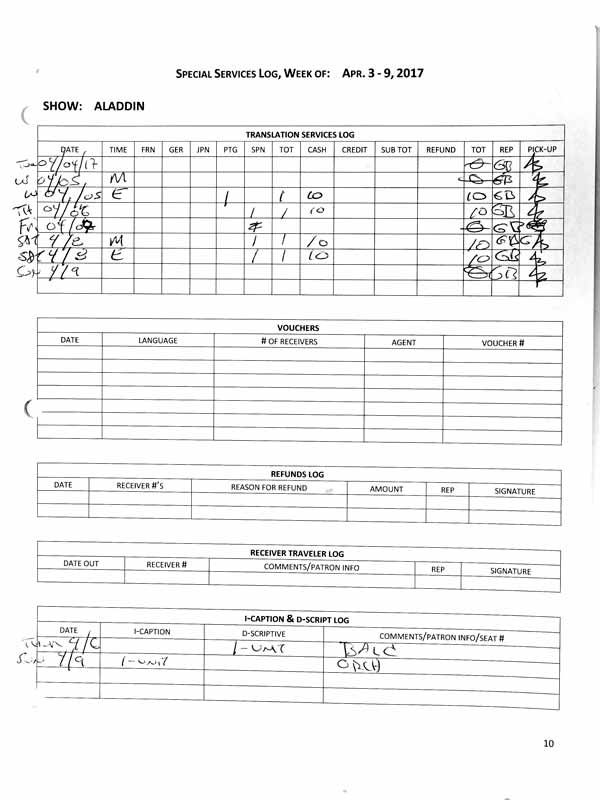 SPECIAL SERVICES LOG, WEEK OF: APR. 3 - 9, 2017
SHOW: ALADDIN
TRANSLATION SERVICES LOG
DATE TIME FRN GER JPN PTG SPN TOT CASH CREDIT SUB TOT REFUND TOT REP PICK-UP
Tue 04/04/17 0 GB
W 04/05 M 0 GB
W 04/05 E 1 1 10 10 GB
TH 04/06 1 1 10 10 GB
Fri 04/07 0 GB
SAT 4/8 M 1 1 10 10 GB
SAT 4/8 E 1 1 10 10 GB
SUN 4/9 0 GB
VOUCHERS
DATE LANGUAGE # OF RECEIVERS AGENT VOUCHER #
REFUNDS LOG
DATE RECEIVER #'S REASON FOR REFUND AMOUNT REP SIGNATURE
RECEIVER TRAVELER LOG
DATE OUT RECEIVER # COMMENTS/PATRON INFO REP SIGNATURE
I-CAPTION & D-SCRIPT LOG
DATE I-CAPTION D-SCRIPTIVE COMMENTS/PATRON INFO/SEAT #
Thur 4/6 1-UNIT BALC
SUN 4/9 1-UNIT ORCH
10